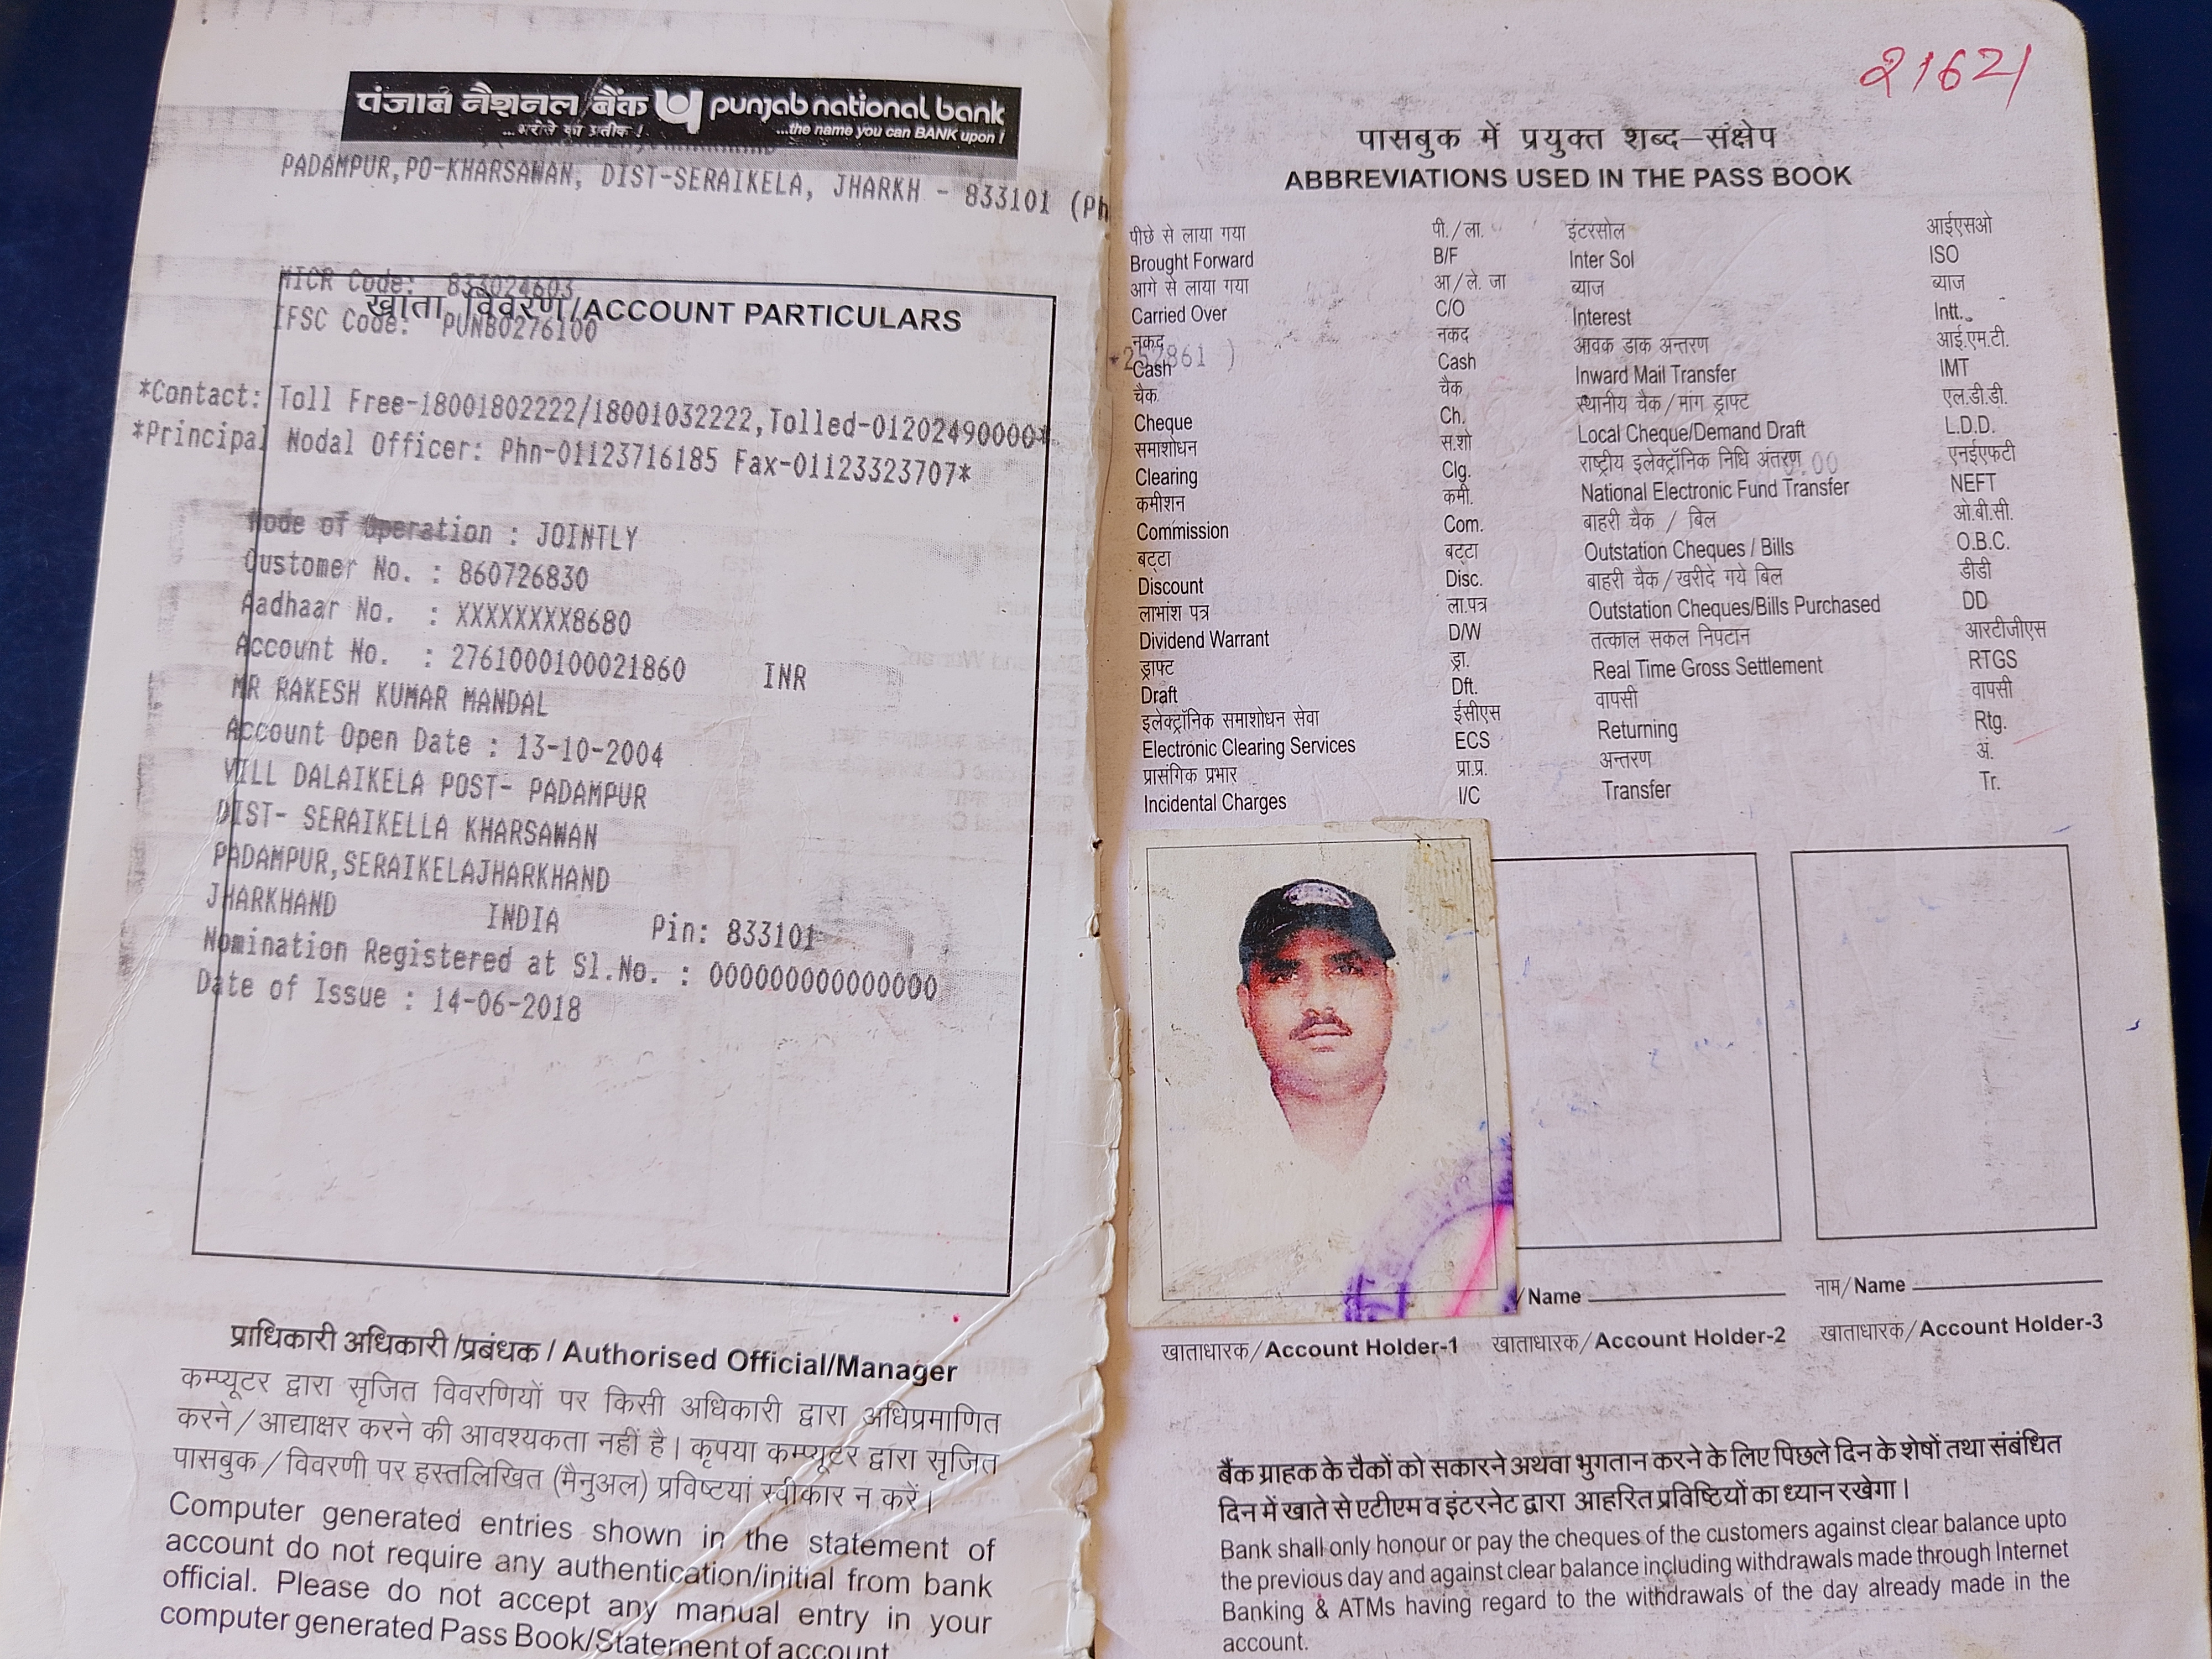 पंजाब नैशनल बैंक punjab national bank
...भरोसे का प्रतीक ! ...the name you can BANK upon !
PADAMPUR,PO-KHARSAWAN, DIST-SERAIKELA, JHARKH - 833101 (Ph
MICR Code: 833024603
खाता विवरण/ACCOUNT PARTICULARS
IFSC Code: PUNB0276100
*Contact: Toll Free-18001802222/18001032222,Tolled-01202490000*
*Principal Nodal Officer: Phn-01123716185 Fax-01123323707*
Mode of Operation : JOINTLY
Customer No. : 860726830
Aadhaar No. : XXXXXXXX8680
Account No. : 2761000100021860 INR
MR RAKESH KUMAR MANDAL
Account Open Date : 13-10-2004
VILL DALAIKELA POST- PADAMPUR
DIST- SERAIKELLA KHARSAWAN
PADAMPUR,SERAIKELAJHARKHAND
JHARKHAND INDIA Pin: 833101
Nomination Registered at Sl.No. : 000000000000000
Date of Issue : 14-06-2018
प्राधिकारी अधिकारी/प्रबंधक / Authorised Official/Manager
कम्प्यूटर द्वारा सृजित विवरणियों पर किसी अधिकारी द्वारा अधिप्रमाणित
करने/आद्याक्षर करने की आवश्यकता नहीं है। कृपया कम्प्यूटर द्वारा सृजित
पासबुक/विवरणी पर हस्तलिखित (मैनुअल) प्रविष्टियां स्वीकार न करें।
Computer generated entries shown in the statement of
account do not require any authentication/initial from bank
official. Please do not accept any manual entry in your
computer generated Pass Book/Statement of account
21621
पासबुक में प्रयुक्त शब्द–संक्षेप
ABBREVIATIONS USED IN THE PASS BOOK
पीछे से लाया गया पी./ला. इंटरसोल आईएसओ
Brought Forward B/F Inter Sol ISO
आगे से लाया गया आ/ले. जा ब्याज ब्याज
Carried Over C/O Interest Intt.
नकद नकद आवक डाक अन्तरण आई.एम.टी.
Cash Cash Inward Mail Transfer IMT
चैक चैक स्थानीय चैक/मांग ड्राफ्ट एल.डी.डी.
Cheque Ch. Local Cheque/Demand Draft L.D.D.
समाशोधन स.शो राष्ट्रीय इलेक्ट्रॉनिक निधि अंतरण एनईएफटी
Clearing Clg. National Electronic Fund Transfer NEFT
कमीशन कमी. बाहरी चैक / बिल ओ.बी.सी.
Commission Com. Outstation Cheques / Bills O.B.C.
बट्टा बट्टा बाहरी चैक/खरीदे गये बिल डीडी
Discount Disc. Outstation Cheques/Bills Purchased DD
लाभांश पत्र ला.पत्र तत्काल सकल निपटान आरटीजीएस
Dividend Warrant D/W Real Time Gross Settlement RTGS
ड्राफ्ट ड्रा. वापसी वापसी
Draft Dft. Returning Rtg.
इलेक्ट्रॉनिक समाशोधन सेवा ईसीएस अन्तरण अं.
Electronic Clearing Services ECS Transfer Tr.
प्रासंगिक प्रभार प्रा.प्र.
Incidental Charges I/C
/Name नाम/Name
खाताधारक/Account Holder-1 खाताधारक/Account Holder-2 खाताधारक/Account Holder-3
बैंक ग्राहक के चैकों को सकारने अथवा भुगतान करने के लिए पिछले दिन के शेषों तथा संबंधित
दिन में खाते से एटीएम व इंटरनेट द्वारा आहरित प्रविष्टियों का ध्यान रखेगा।
Bank shall only honour or pay the cheques of the customers against clear balance upto
the previous day and against clear balance including withdrawals made through Internet
Banking & ATMs having regard to the withdrawals of the day already made in the
account.